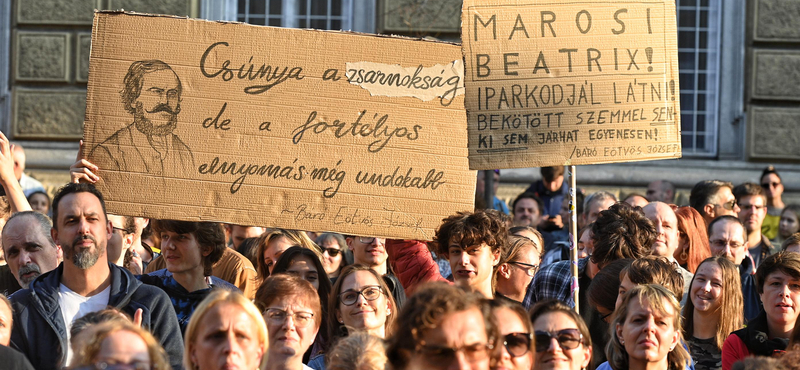 Csúnya a zsarnokság
de a fortélyos
elnyomás még undokabb
~Báró Eötvös József
MAROSI
BEATRIX!
IPARKODJÁL LÁTNI!
BEKÖTÖTT SZEMMEL SEN-
KI SEM JÁRHAT EGYENESEN!
/BÁRÓ EÖTVÖS JÓZSEF/